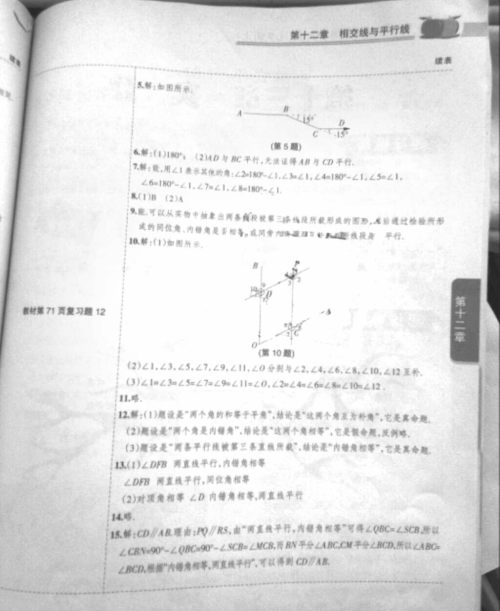 第十二章 相交线与平行线
续表
5.解:如图所示.
A B 15° C D 15°
(第5题)
6.解:(1)180°; (2)AD与BC平行,无法证得AB与CD平行.
7.解:能,用∠1表示其他的角:∠2=180°-∠1,∠3=∠1,∠4=180°-∠1,∠5=∠1,
∠6=180°-∠1,∠7=∠1,∠8=180°-∠1.
8.(1)B (2)A
9.能.可以从实物中抽象出两条线段被第三条线段所截形成的图形,然后通过检验所形
成的同位角、内错角是否相等,或同旁内角 线段 平行.
10.解:(1)如图所示.
B
D
A
O C
(第10题)
教材第71页复习题12
第十二章
(2)∠1,∠3,∠5,∠7,∠9,∠11,∠O分别与∠2,∠4,∠6,∠8,∠10,∠12互补.
(3)∠1=∠3=∠5=∠7=∠9=∠11=∠O,∠2=∠4=∠6=∠8=∠10=∠12.
11.略.
12.解:(1)题设是“两个角的和等于平角”,结论是“这两个角互为补角”,它是真命题.
(2)题设是“两个角是内错角”,结论是“这两个角相等”,它是假命题,反例略.
(3)题设是“两条平行线被第三条直线所截”,结论是“内错角相等”,它是真命题.
13.(1)∠DFB 两直线平行,内错角相等
∠DFB 两直线平行,同位角相等
(2)对顶角相等 ∠D 内错角相等,两直线平行
14.略.
15.解:CD∥AB.理由:PQ∥RS,由“两直线平行,内错角相等”可得∠QBC=∠SCB,所以
∠CBN=90°-∠QBC=90°-∠SCB=∠MCB,而BN平分∠ABC,CM平分∠BCD,所以∠ABC=
∠BCD,根据“内错角相等,两直线平行”,可以得到CD∥AB.